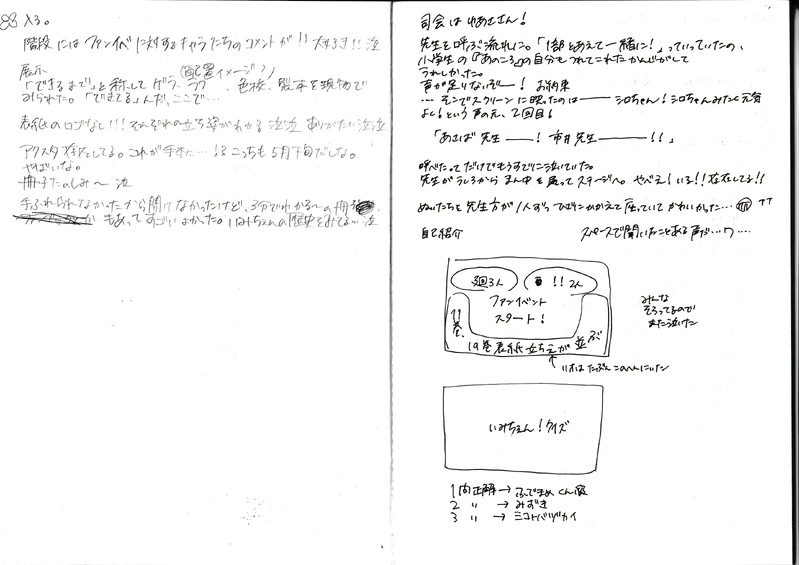 入る。
階段にはファンイベに対するキャラたちのコメントが!! 大好き!! 泣
展示 (配置イメージ)
「できるまで」と称して ゲラ、ラフ、色校、製本を現物で
みられた。「できてる」んだ、ここで…
表紙のロゴなし!!! それぞれの立ち姿がわかる 泣泣 ありがたい 泣泣
アクスタ 存在してる。これが手元に…!! こっちも5月下旬だしな。
やばいな。
冊子たのしみ〜 泣
手ふれられなかったから開けなかったけど、3分でわかる〜の冊
もあってすごいよかった。いみちぇんの歴史をみてる… 泣
司会はゆあさん!
先生を呼ぶ流れに。「1部とあえて一緒に!」っていってたの、
小学生の「あのころ」の自分もつれてこれたかんじがして
うれしかった。
声が足りないぞー! お約束
… そこでスクリーンに映ったのは ── シロちゃん! シロちゃんみたく元気
よく!という声のえ、2回目!
「あさば先生 ──! 市井先生 ────!!」
呼べたってだけでもうすでに泣いていた。
先生がうしろからまん中を通ってステージへ。やべえ!いる!! 存在してる!!
ぬいたちを先生方が1人ずつひざにかかえて座っていてかわいかった…
自己紹介
スペースで聞いたことある声だ…ワ…
ファンイベント
スタート!
11巻、
19巻表紙立ちえが並ぶ
みんな
そろってるので
また泣けた
いみちぇん!クイズ
1問正解→ふでまめくん級
2 〃 →みずき
3 〃 →ミコトバヅカイ